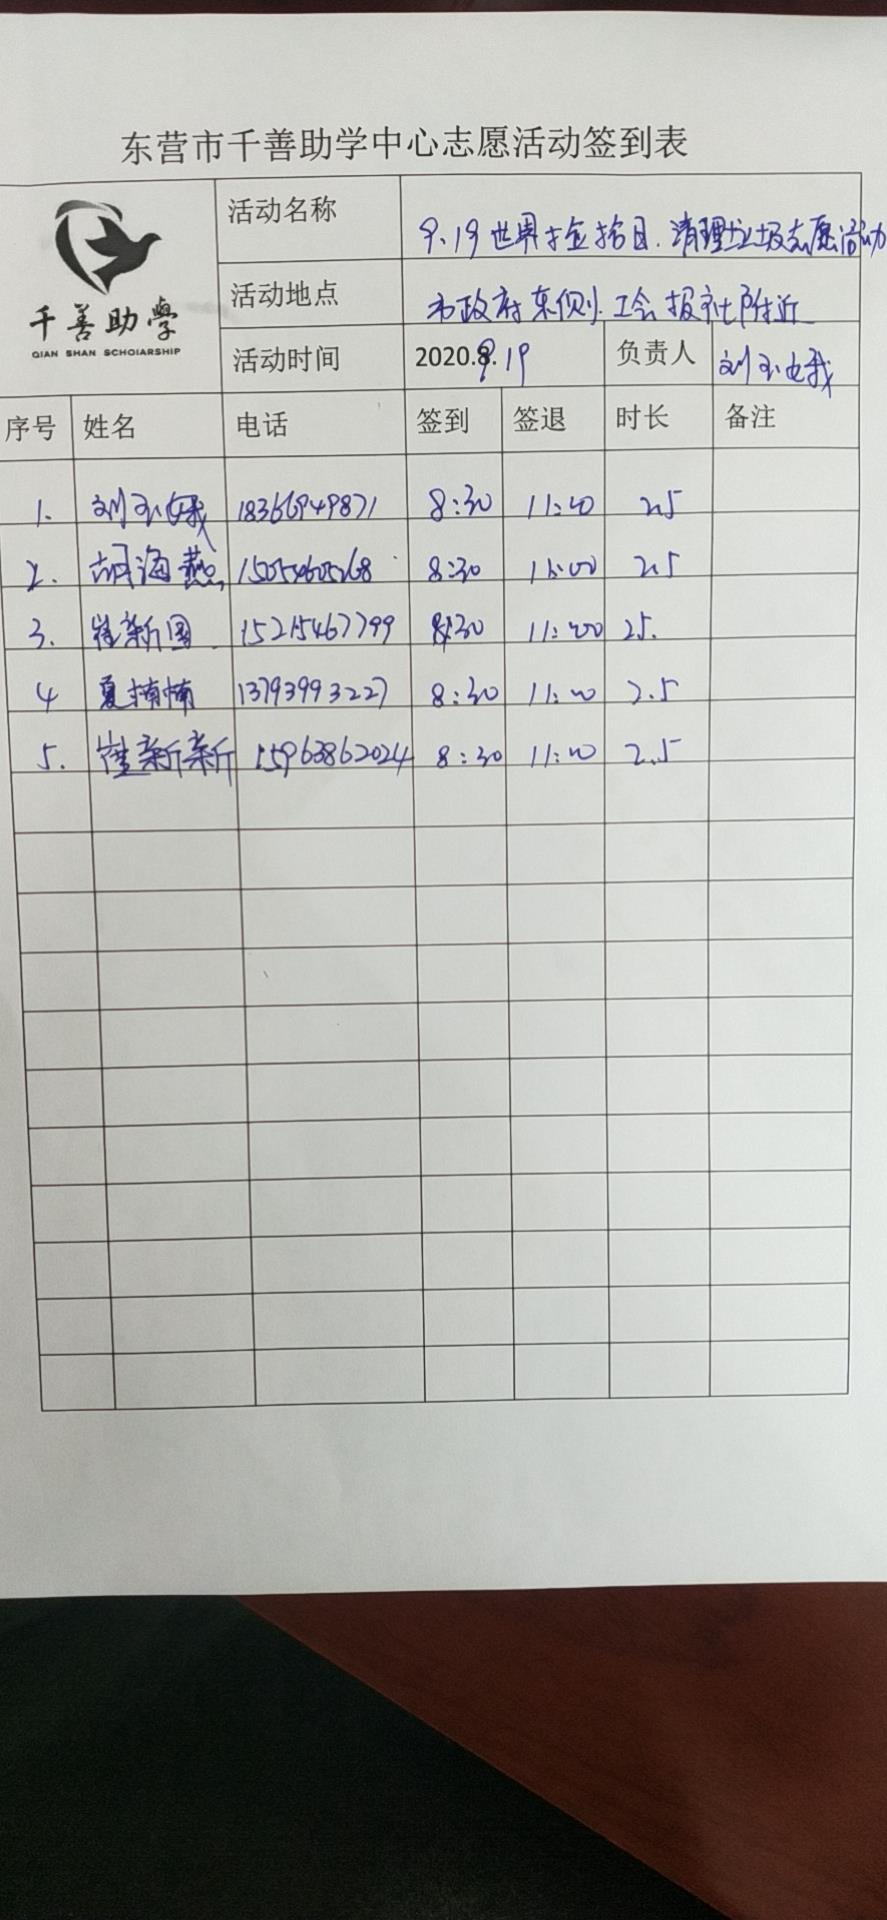 东营市千善助学中心志愿活动签到表
千善助学
QIAN SHAN SCHOIARSHIP
活动名称 9.19世界捡拾日.清理垃圾志愿活动
活动地点 市政府东侧.工会报社附近
活动时间 2020.9.19 负责人 刘玉娥
序号 姓名 电话 签到 签退 时长 备注
1. 刘玉娥 18366949871 8:30 11:00 2.5
2. 胡海燕 15054605268 8:30 11:00 2.5
3. 崔新国 15215467799 8:30 11:00 25.
4 夏楠楠 13793993227 8:30 11:00 2.5
5. 崔新新 15963862024 8:30 11:00 2.5